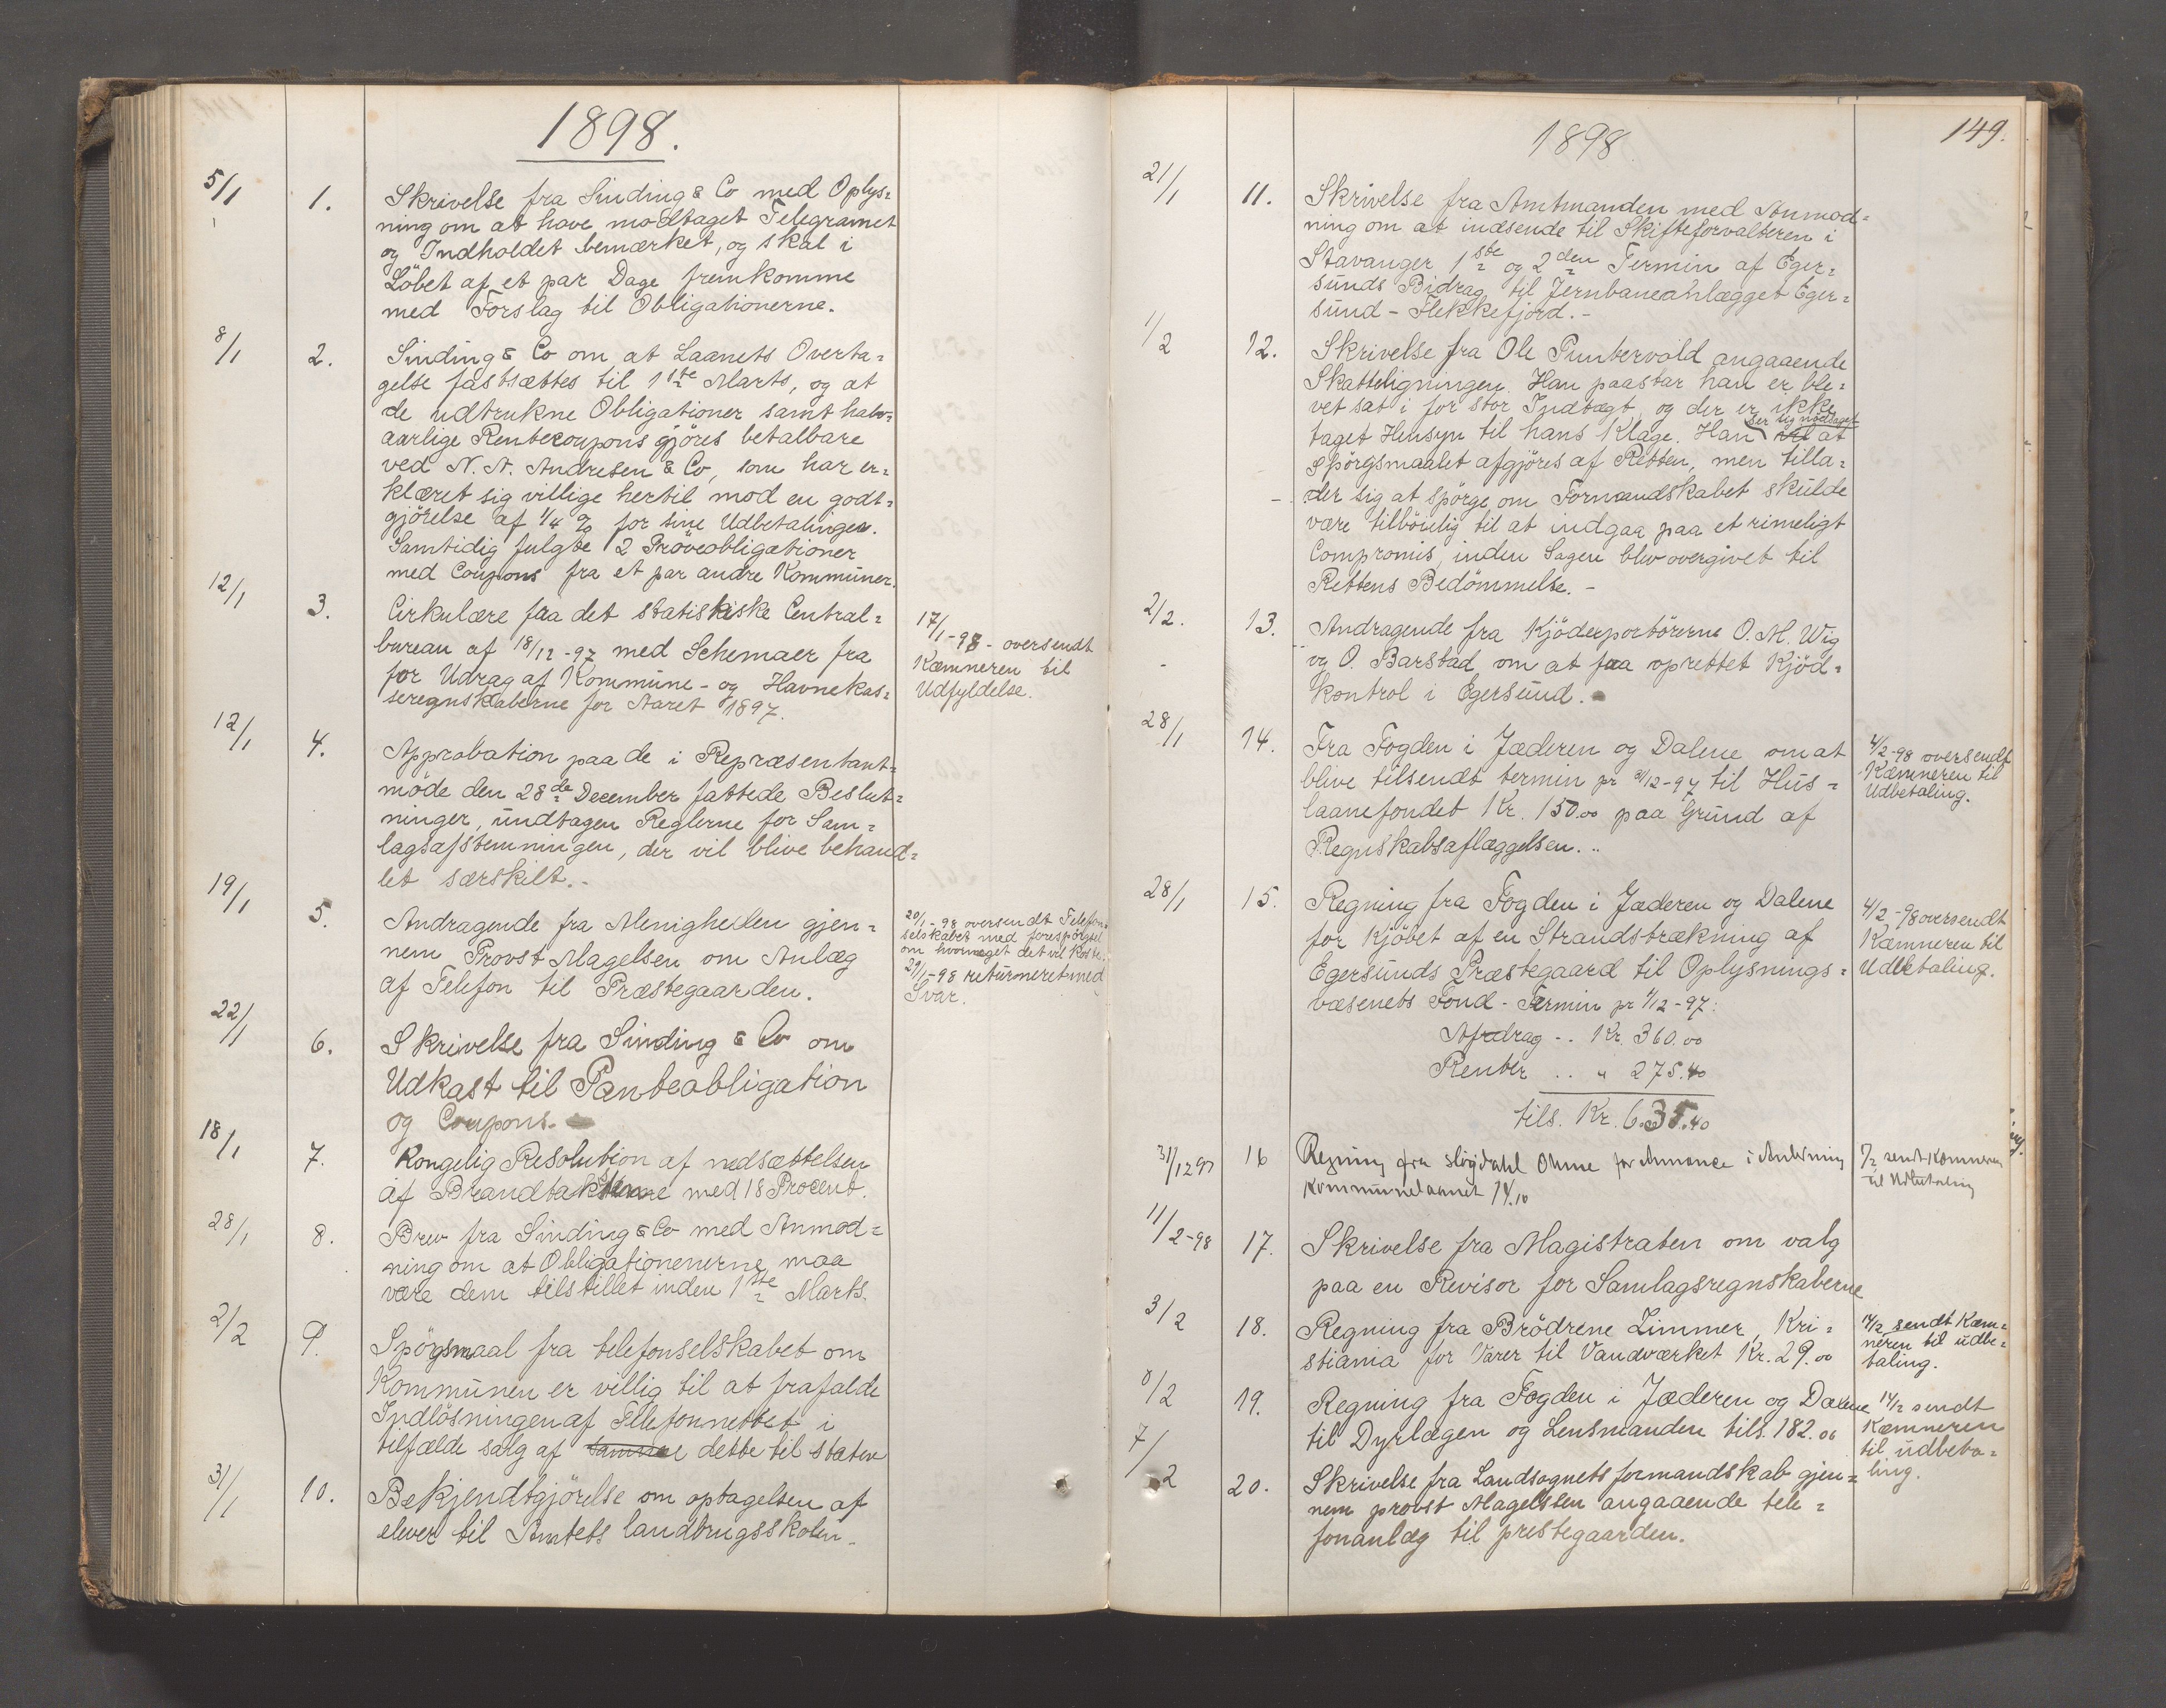 1898.
5/1 1. Skrivelse fra Sinding & Co med Oplys=
ning om at have modtaget Telegramet
og Indholdet bemærket, og skal i
Löbet af et par Dage fremkomme
med Forslag til Obligationerne.
8/1 2. Sinding & Co om at Laanets Overta=
gelse fastsættes til 1ste Marts, og at
de udtrukne Obligationer samt halv=
aarlige Rentecoupons gjöres betalbare
ved N. A. Andresen & Co, som har er=
klæret sig villige hertil mod en godt=
gjörelse af 1/4 % for sine Udbetalinger.
Samtidig fulgte 2 Pröveobligationer
med Coupons fra et par andre Kommuner.
12/1 3. Cirkulære fra det statistiske Central=
bureau af 18/12-97 med Schemaer fra
for Udrag af Kommune- og Havnekas=
seregnskaberne for Aaret 1897.
17/1-98 - oversendt
Kæmneren til
Udfyldelse.
12/1 4. Approbation paa de i Repræsentant=
möde den 28de December fattede Beslut=
ninger, undtagen Reglerne for Sam=
lagsafstemningen, der vil blive behand=
let særskilt.-
19/1 5. Andragende fra Menigheden gjen=
nem Provst Magelsen om Anlæg
af Telefon til Præstegaarden.
20/1-98 oversendt Telefon=
selskabet med forespörgsel
om hvormeget det vil koste.
29/1-98 returneret med
Svar.
22/1 6. Skrivelse fra Sinding & Co om
Udkast til Panteobligation
og Coupons.
18/1 7. Kongelig Resolution af nedsættelsen
af Brandtaksterne med 18 Procent.
28/1 8. Brev fra Sinding & Co med Anmod=
ning om at Obligationenerne maa
være dem tilstillet inden 1ste Marts.
2/2 9. Spögsmaal fra telefonselskabet om
Kommunen er villig til at frafalde
Indlösningen af Telefonnettet i
tilfælde salg af samme dette til staten
31/1 10. Bekjendtgjörelse om optagelsen af
elever til Amtets landbrugsskolen.
149.
1898
21/1 11. Skrivelse fra Amtmanden med Anmod=
ning om at indsende til Skifteforvalteren i
Stavanger 1ste og 2den Termin af Eger=
sunds Bidrag til Jernbaneanlægget Eger=
sund - Flekkefjord.-
1/2 12. Skrivelse fra Ole Puntervold angaaende
Skatteligningen. Han paastar han er ble=
vet sat i for stor Indtægt, og der er ikke
ser sig nödsaget
taget Hensyn til hans Klage. Han vil at
Spörgsmaalet afgjöres af Retten, men tilla=
der sig at spörge om Formandskabet skulde
være tilböielig til at indgaa paa et rimeligt
Compromis, inden Sagen blev overgivet til
Rettens Bedömmelse.-
2/2. 13. Andragende fra Kjödexportörerne O. M. Wig
og O. Barstad om at faa oprettet Kjöd=
kontrol i Egersund.
28/1 14. Fra Fogden i Jæderen og Dalene om at
blive tilsendt termin pr 31/12-97 til Hus=
laanefondet Kr. 150.00 paa Grund af
Regnskabsaflæggelsen...
4/2-98 oversendt
Kæmneren til
Udbetaling.
28/1 15. Regning fra Fogden i Jæderen og Dalene
for Kjöbet af en Strandstrækning af
Egersunds Præstegaard til Oplysnings=
væsenets Fond - Termin pr 1/12-97:
Afdrag .. Kr. 360.00
Renter .. " 275.40
tils. Kr. 635.40
4/2-98 oversendt
Kæmneren til
Udbetaling.
31/12 97 16 Regning fra Slogdahl Ohme for Annonce i Anledning
Kommunelaanet 14.10
7/2 sendt Kæmneren
til Udbetaling
11/2-98 17. Skrivelse fra Magistraten om valg
paa en Revisor for Samlagsregnskaberne
3/2 18. Regning fra Brödrene Zimmer, Kri=
stiania for Varer til Vandværket Kr. 29.00
14/2 sendt Kæm=
neren til udbe=
taling.
8/2 19. Regning fra Fogden i Jæderen og Dalene
til Dyrlægen og Lensmanden tils. 182.06
14/2 sendt
Kæmneren
til udbeta=
ling.
7/2 20. Skrivelse fra Landsognets formandskab gjen=
nem provst Magelssen angaaende tele=
fonanlæg til prestegaarden.